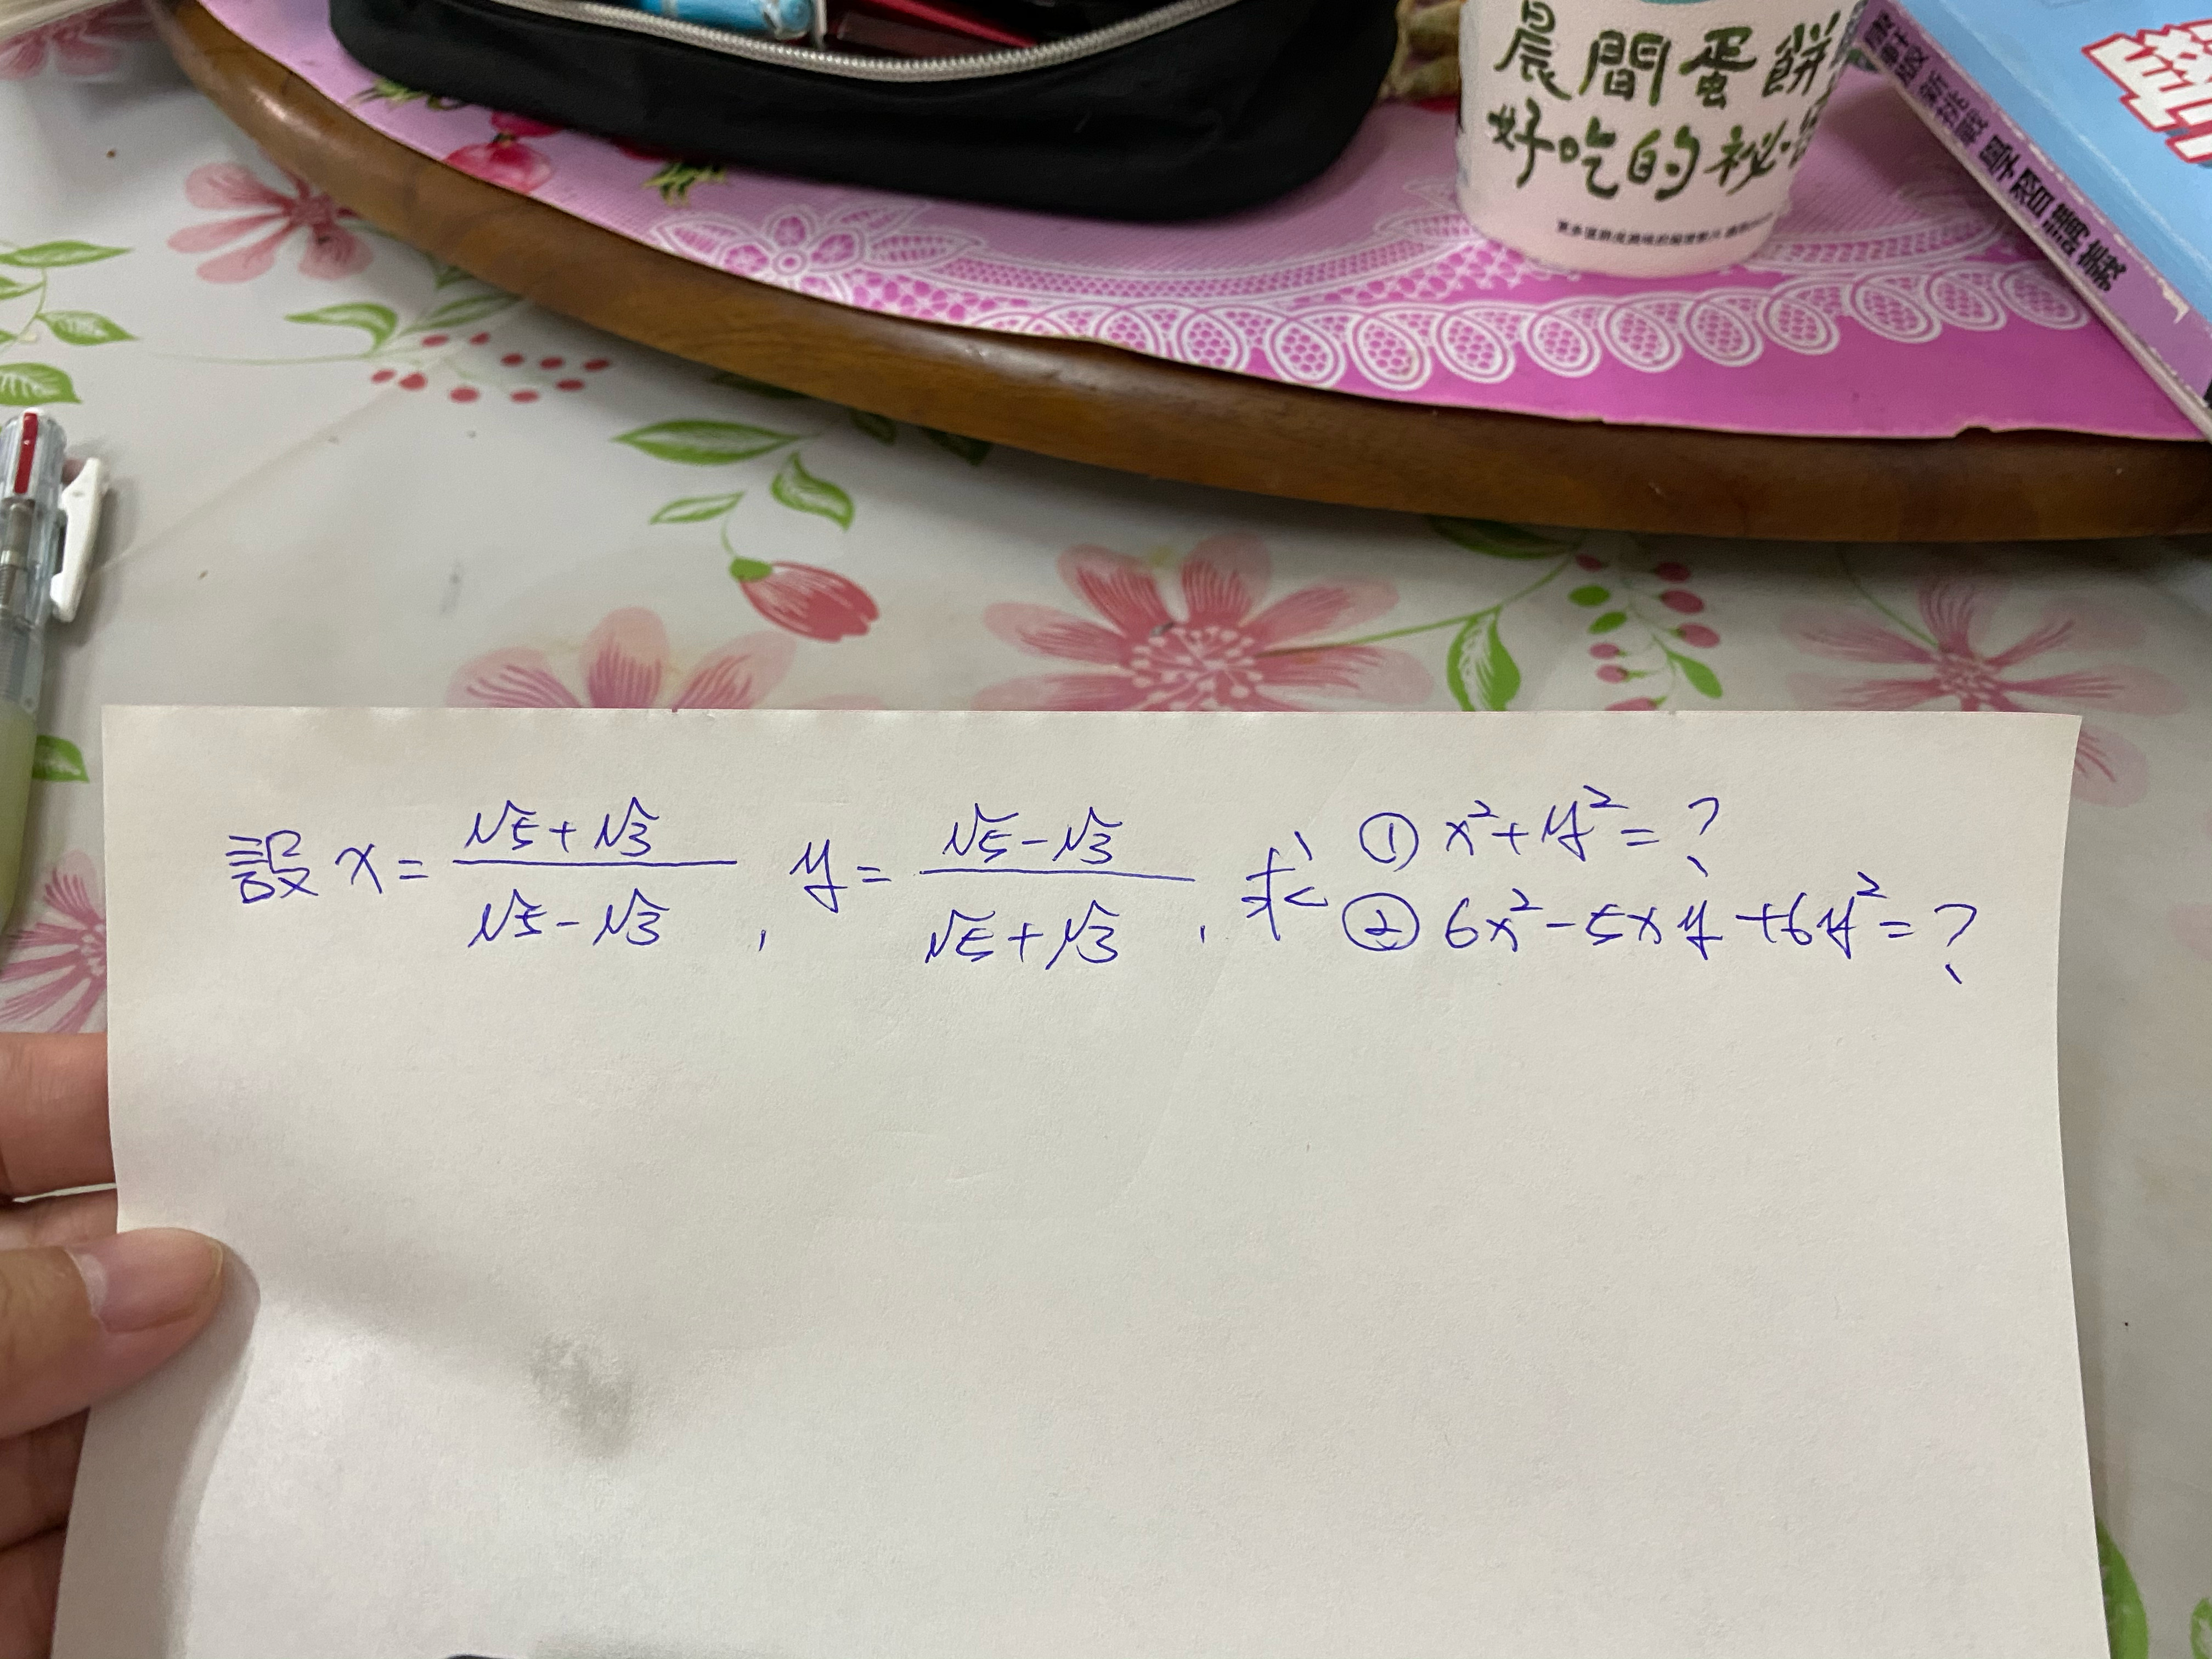 晨間蛋餅
好吃的祕
學習講義
設 x = (√5+√3)/(√5-√3), y = (√5-√3)/(√5+√3), 求 ① x²+y²=?
② 6x²-5xy+6y²=?